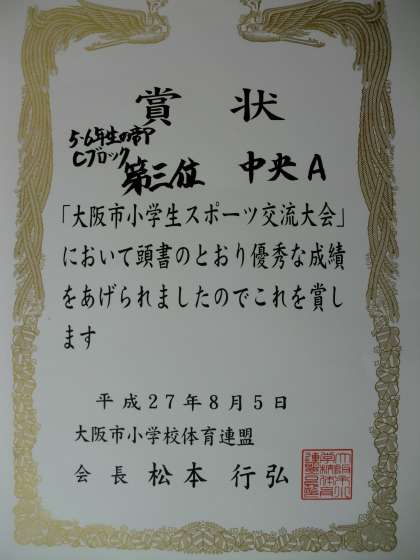 賞状
5・6年生の部
Cブロック
第三位 中央A
「大阪市小学生スポーツ交流大会」
において頭書のとおり優秀な成績
をあげられましたのでこれを賞し
ます
平成27年8月5日
大阪市小学校体育連盟
会長 松本 行弘